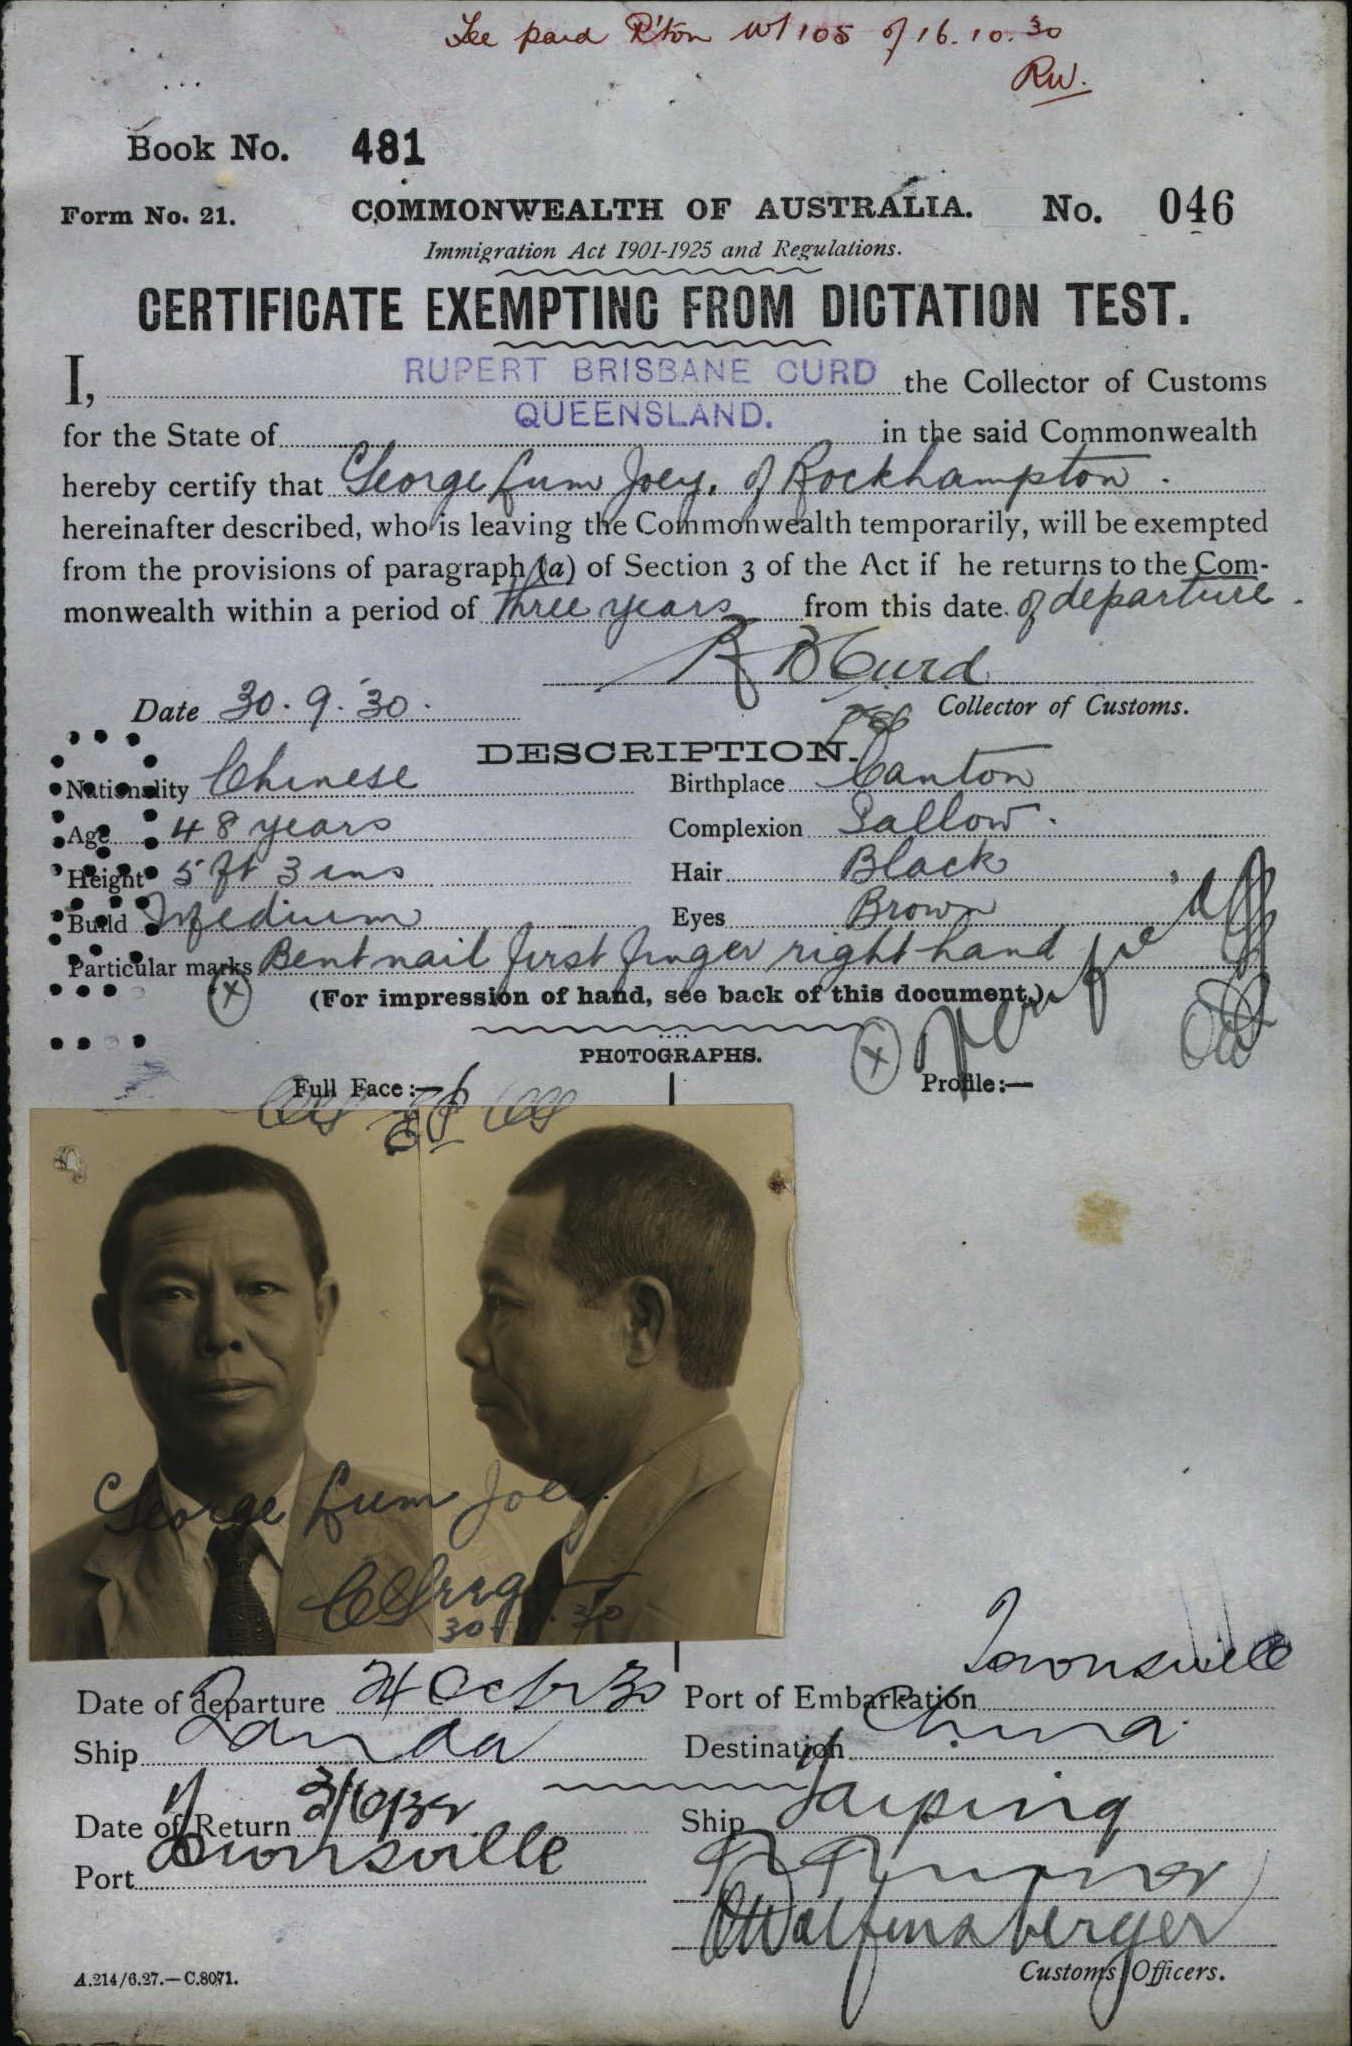 Fee paid R'ton W/105 of 16.10.30
RW.
Book No. 481
Form No. 21. COMMONWEALTH OF AUSTRALIA. No. 046
Immigration Act 1901-1925 and Regulations.
CERTIFICATE EXEMPTING FROM DICTATION TEST.
I, RUPERT BRISBANE CURD the Collector of Customs
for the State of QUEENSLAND. in the said Commonwealth
hereby certify that George Lum Joey, of Rockhampton.
hereinafter described, who is leaving the Commonwealth temporarily, will be exempted
from the provisions of paragraph (a) of Section 3 of the Act if he returns to the Com-
monwealth within a period of three years from this date of departure.
R B Curd
Date 30.9.30. Collector of Customs.
DESCRIPTION.
Nationality Chinese Birthplace Canton
Age 48 years Complexion Sallow.
Height 5 ft 3 ins Hair Black
Build Medium Eyes Brown
Particular marks Bent nail first finger right hand
(For impression of hand, see back of this document.)
PHOTOGRAPHS.
Full Face:— Profile:—
George Lum Joey.
Date of departure 24 Octbr 30 Port of Embarkation Townsville
Ship Tanda Destination China.
Date of Return Ship Taiping
Port Townsville
Customs Officers.
A.214/6.27.—C.8071.